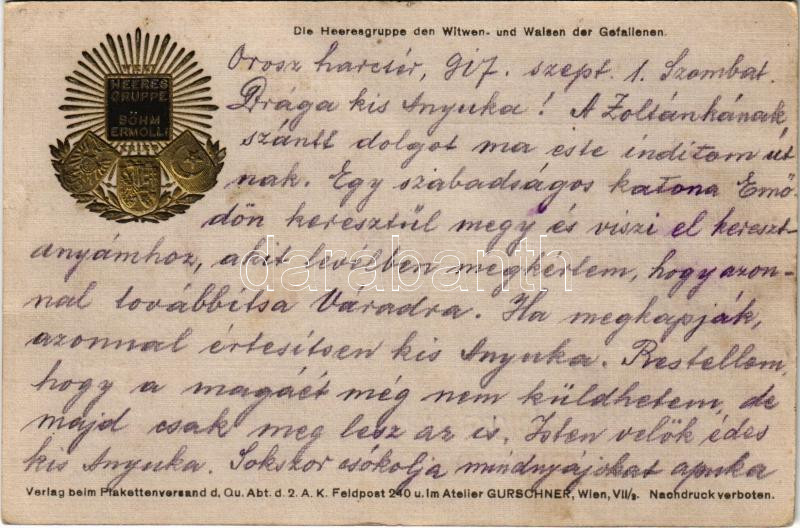 Die Heeresgruppe den Witwen- und Waisen der Gefallenen.
HEERES
GRUPPE
BÖHM
ERMOLLI
Orosz harctér, 917. szept. 1. Szombat.
Drága kis Anyuka! A Zoltánkának
szánt dolgot ma este indítom út
nak. Egy szabadságos katona Emő-
dön keresztül megy és viszi el kereszt-
anyámhoz, akit levélben megkértem, hogy azon-
nal továbbítsa Váradra. Ha megkapják,
azonnal értesítsen kis Anyuka. Restellem,
hogy a magáét még nem küldhetem, de
majd csak meg lesz az is. Isten velök édes
kis Anyuka. Sokszor csókolja mindnyájokat apuka
Verlag beim Plakettenversand d. Qu. Abt. d. 2. A. K. Feldpost 240 u. im Atelier GURSCHNER, Wien, VII/2. Nachdruck verboten.
darabanth